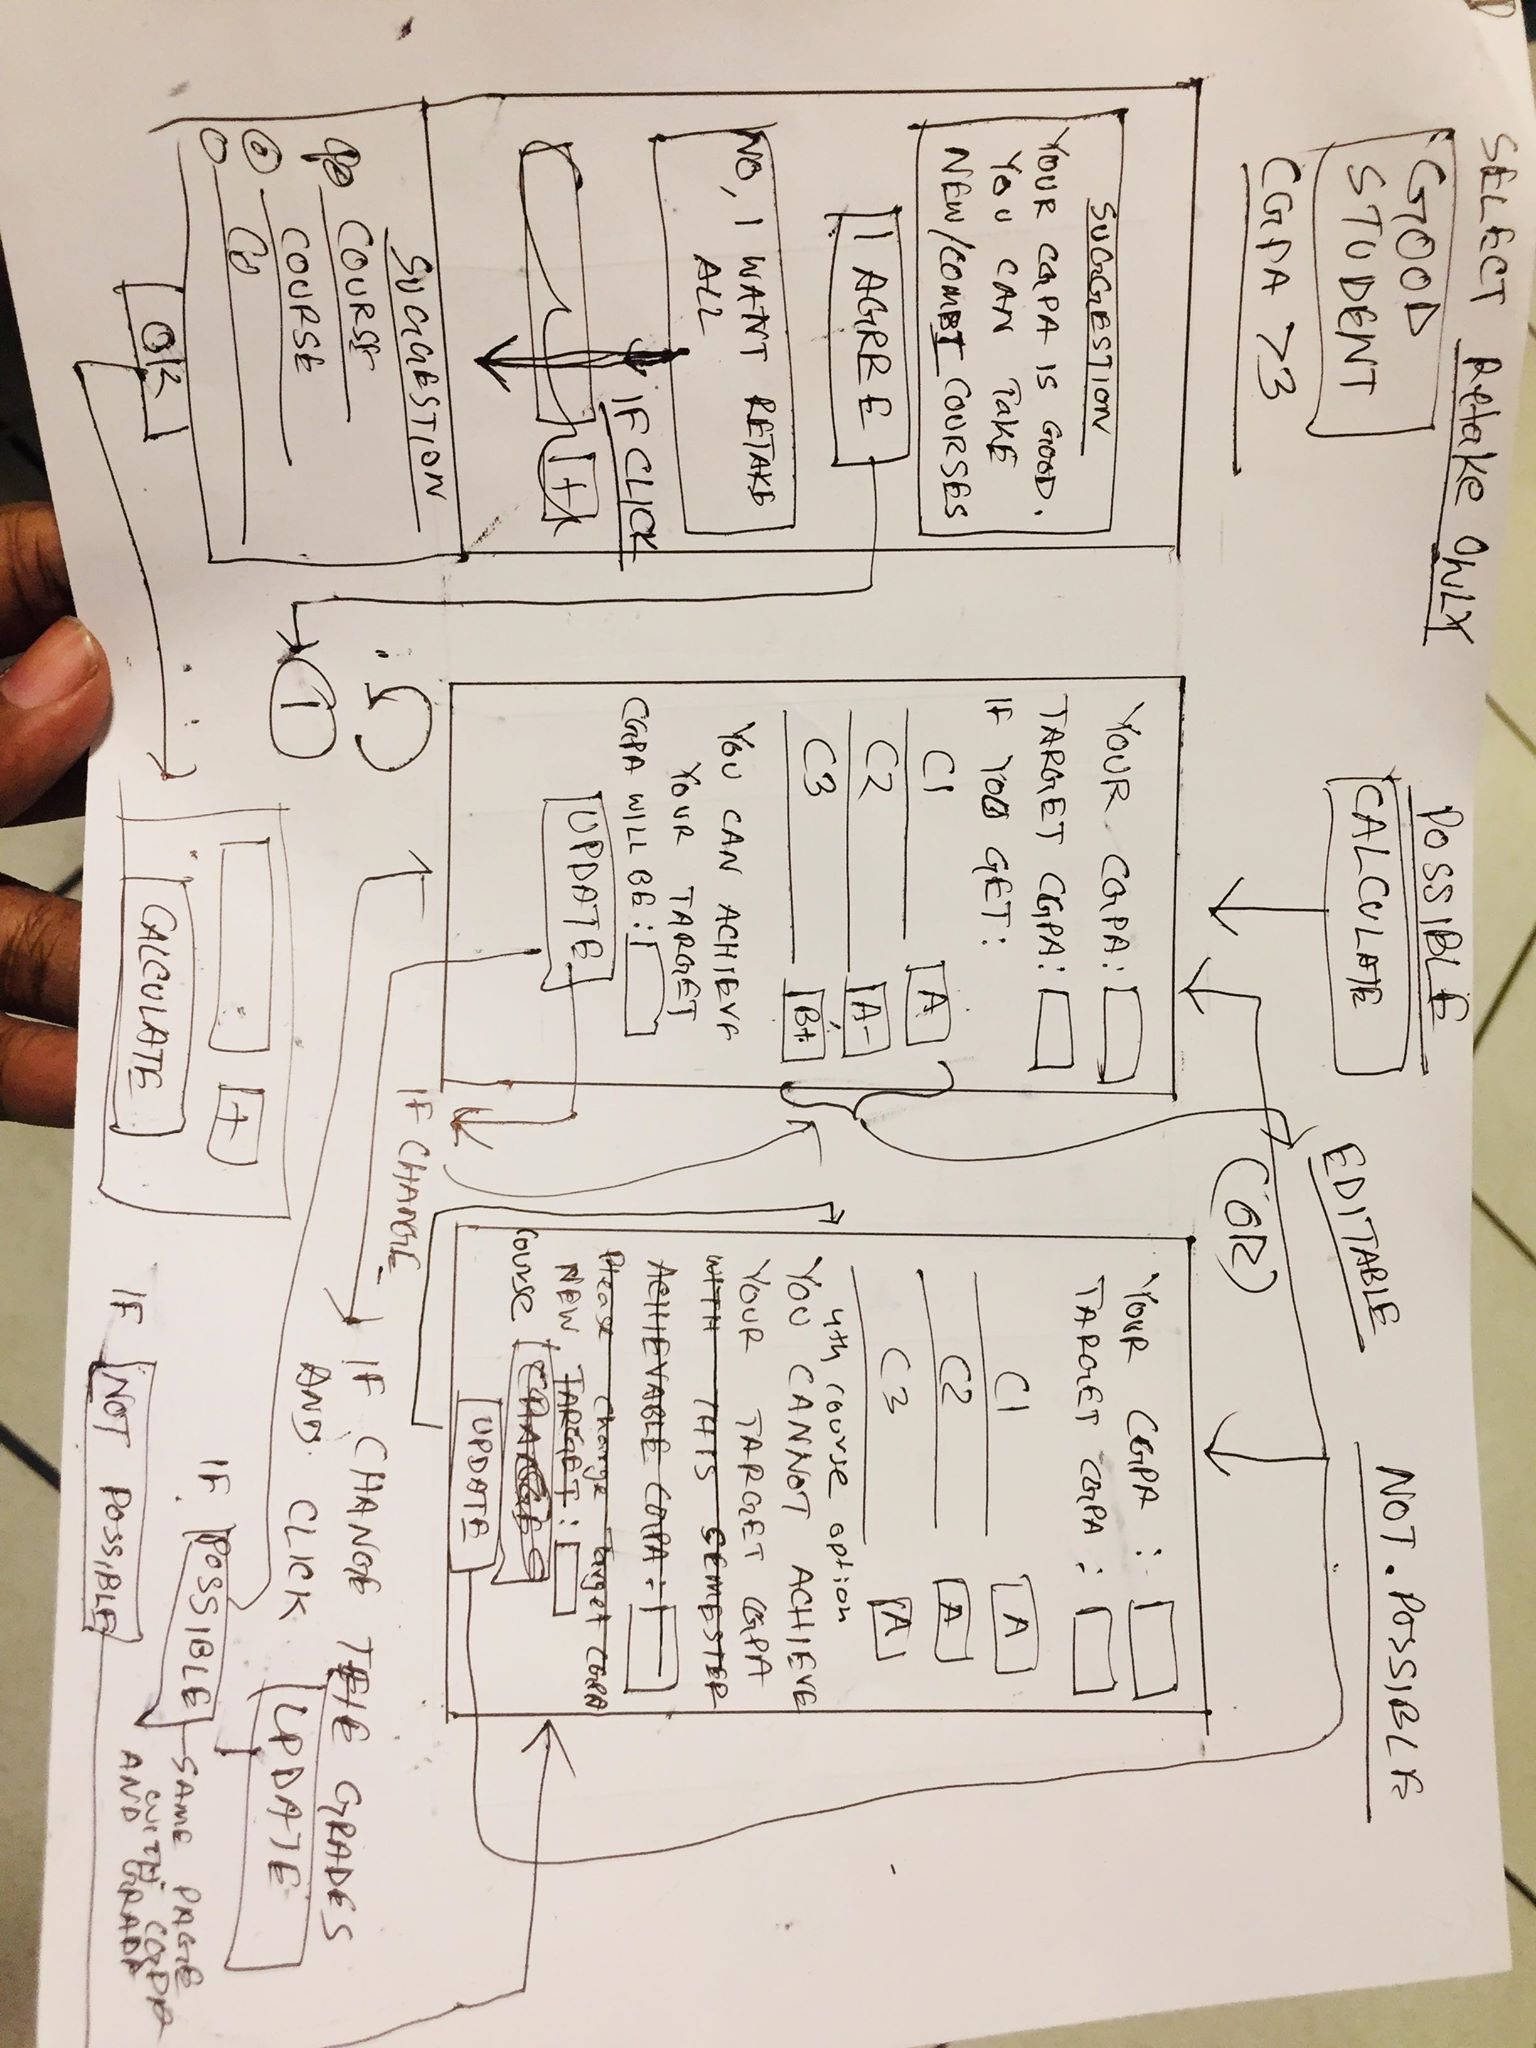 SELECT Retake ONLY
GOOD
STUDENT
CGPA >3
SUGGESTION
YOUR CGPA IS GOOD.
YOU CAN TAKE
NEW/COMBI COURSES
I AGRRE
NO, I WANT RETAKE
ALL
IF CLICK
+
SUGGESTION
COURSE
COURSE
CO
OK
POSSIBLE
CALCULATE
EDITABLE
(OR)
YOUR CGPA:
TARGET CGPA:
IF YOU GET:
C1 A
C2 A-
C3 B+
YOU CAN ACHIEVE
YOUR TARGET
CGPA WILL BE:
UPDATE
IF CHANGE
1
+
CALCULATE
NOT.POSSIBLE
YOUR CGPA :
TARGET CGPA :
C1 A
C2 A
C3 A
4th course option
YOU CANNOT ACHIEVE
YOUR TARGET CGPA
WITH THIS SEMESTER
ACHIEVABLE CGPA:
Please change Target CGPA
NEW TARGET:
course CHANGE
UPDATE
IF CHANGE THE GRADES
AND CLICK UPDATE
IF POSSIBLE
SAME PAGE
WITH CGPA
AND GRADE
IF NOT POSSIBLE